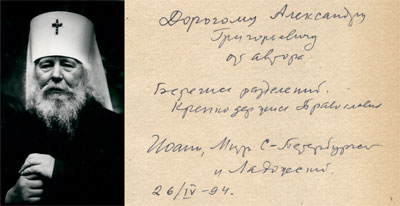 Дорогому Александру
Григорьевичу
от автора.
Берегись разделений.
Крепко держись Православия
Иоанн, Митр С-Петербургский
и Ладожский.
26/IV-94.